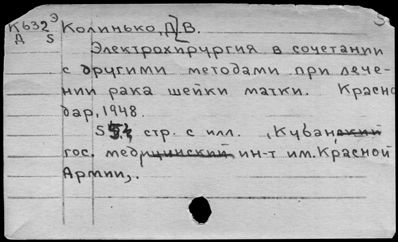 К632 Э Колинько, Д. В.
Д 5
Электрохирургия в сочетании
с другими методами при лече-
нии рака шейки матки. Красно
дар, 1948.
стр. с илл. , Кубанский
гос. медицинский ин-т им. Красной
Армии,.